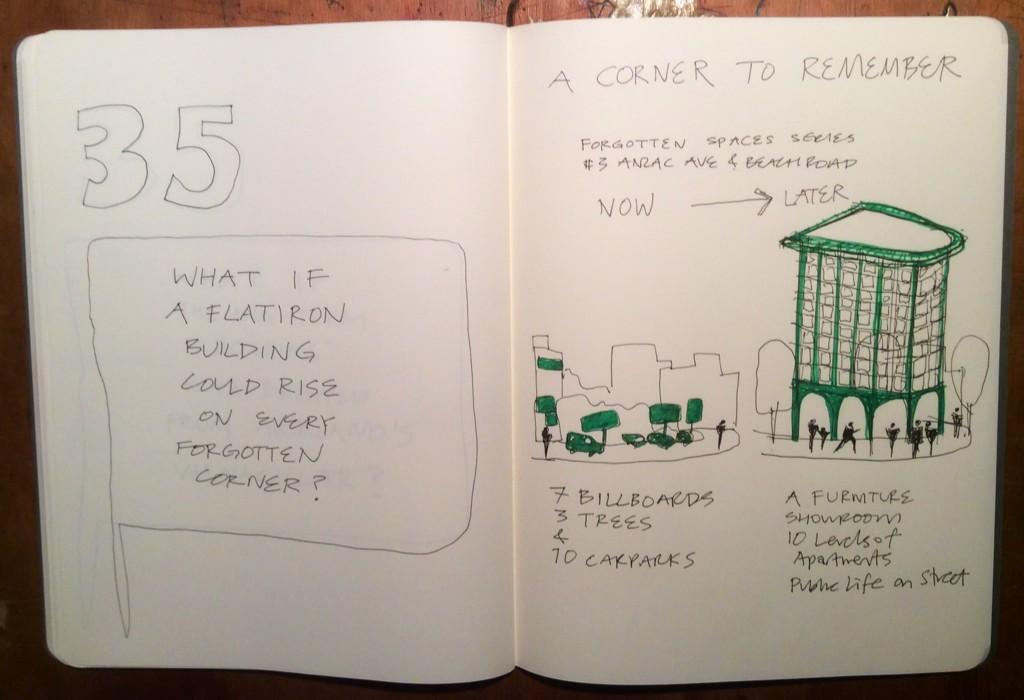 35
WHAT IF
A FLATIRON
BUILDING
COULD RISE
ON EVERY
FORGOTTEN
CORNER?
A CORNER TO REMEMBER
FORGOTTEN SPACES SERIES
#3 ANZAC AVE & BEACH ROAD
NOW → LATER
7 BILLBOARDS
3 TREES
&
10 CARPARKS
A FURNITURE
SHOWROOM
10 Levels of
Apartments
Public Life on Street